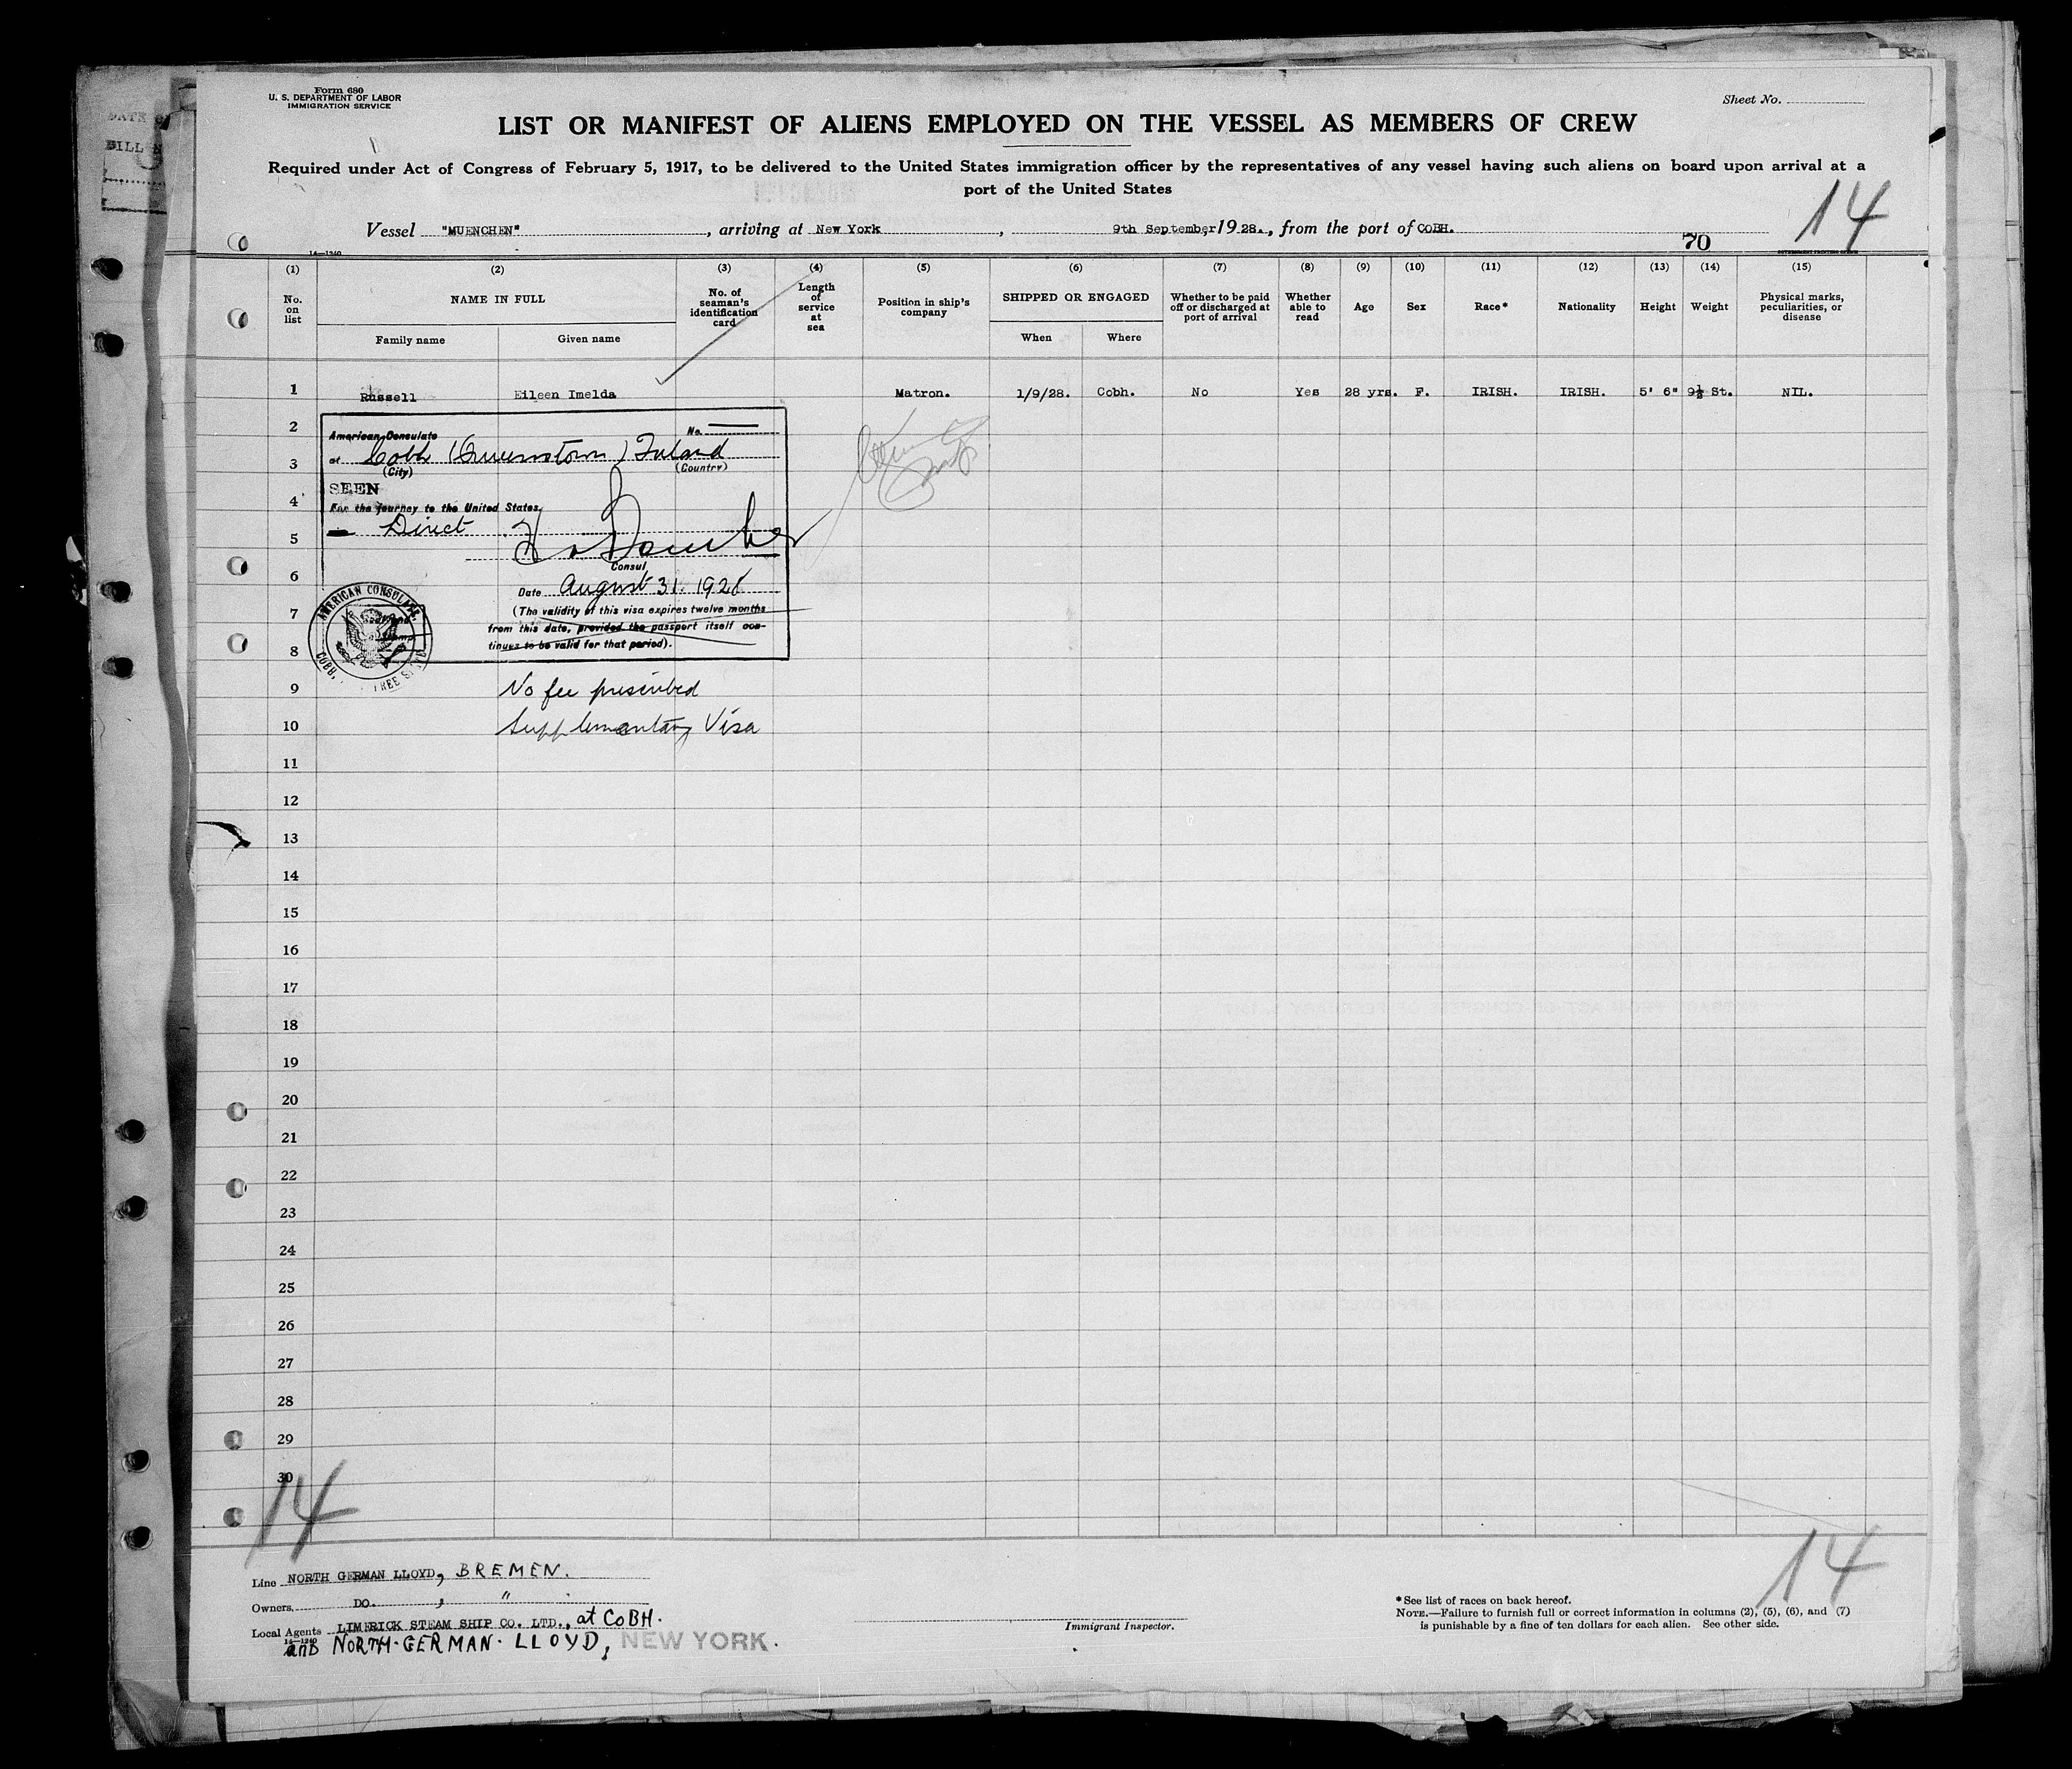 Form 680
U. S. DEPARTMENT OF LABOR
IMMIGRATION SERVICE
Sheet No.
LIST OR MANIFEST OF ALIENS EMPLOYED ON THE VESSEL AS MEMBERS OF CREW
Required under Act of Congress of February 5, 1917, to be delivered to the United States immigration officer by the representatives of any vessel having such aliens on board upon arrival at a
port of the United States
14
Vessel "MUENCHEN", arriving at New York, 9th September, 1928., from the port of COBH.
70
14—1240
(1) (2) (3) (4) (5) (6) (7) (8) (9) (10) (11) (12) (13) (14) (15)
No. on list
NAME IN FULL
Family name
Given name
No. of seaman's identification card
Length of service at sea
Position in ship's company
SHIPPED OR ENGAGED
When
Where
Whether to be paid off or discharged at port of arrival
Whether able to read
Age
Sex
Race*
Nationality
Height
Weight
Physical marks, peculiarities, or disease
1 Russell Eileen Imelda Matron. 1/9/28. Cobh. No Yes 28 yrs. F. IRISH. IRISH. 5' 6" 9½ St. NIL.
2
3
4
5
6
7
8
9
10
11
12
13
14
15
16
17
18
19
20
21
22
23
24
25
26
27
28
29
30
American Consulate No.
at Cobh (Queenstown) Ireland
(City) (Country)
SEEN
For the journey to the United States
Direct
Consul
Date August 31. 1928
(The validity of this visa expires twelve months
from this date, provided the passport itself con-
tinues to be valid for that period).
AMERICAN CONSULATE,
COBH, FREE
No fee prescribed
Supplementary Visa
14
14
Line NORTH GERMAN LLOYD, BREMEN.
Owners DO. , "
Local Agents LIMERICK STEAM SHIP CO. LTD., at COBH.
14—1240
and NORTH-GERMAN-LLOYD, NEW YORK.
Immigrant Inspector.
*See list of races on back hereof.
NOTE.—Failure to furnish full or correct information in columns (2), (5), (6), and (7)
is punishable by a fine of ten dollars for each alien. See other side.